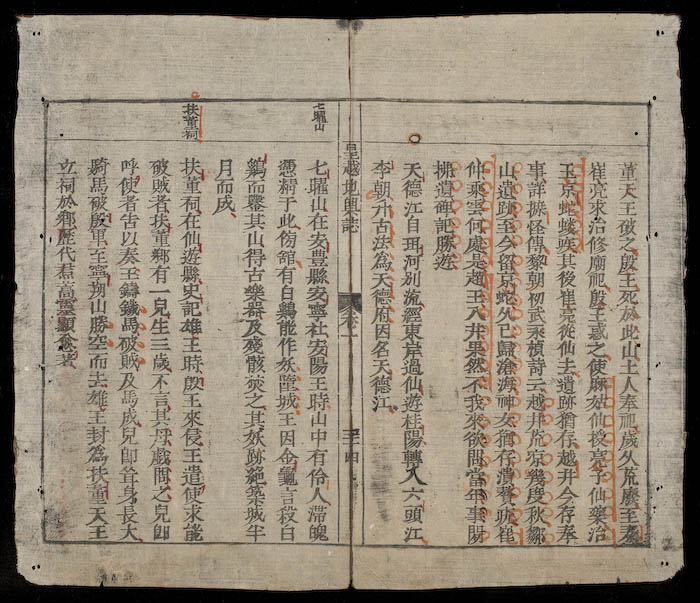 董天王破之殷王死於此山土人奉祀歲久荒廢至秦
崔亮求治修廟祀殷王感之使麻姑仙授亮子仙藥治
玉京蛇蜮其後崔亮從仙去遺跡猶存越井今存奉
事詳摭怪傳黎朝初武永楨詩云越井荒凉幾度秋鄒
山遺跡至今留京蛇久已歸滄海神女猶存漬齊玩崔
仲乘雲何處是趙王入井果然不我來欲問當年事陽
拂遺碑記勝遊
天德江自珥河別流經東岸過仙遊桂陽轉入六頭江
李朝升古法為天德府因名天德江
皇越地輿誌
卷一
三十四
七曜山
七曜山在安豊縣安寧社安陽王時山中有伶人滯魄
憑精于此傍舘有白鷄能作妖墮城王因金龜言殺白
鷄而鑿其山得古樂器及殘骸焚之其妖跡絕築城半
月而成
扶董祠
扶董祠在仙遊縣史記雄王時殷王來侵王遣使求能
破賊者扶董鄉有一兒生三歲不言其母戲問之兒即
呼使者告以奏王鑄鐵馬破賊及馬成兒即耸身長大
騎馬破殷軍至寧朔山騰空而去雄王封為扶董天王
立祠於鄉歷代焄高靈顯僉著